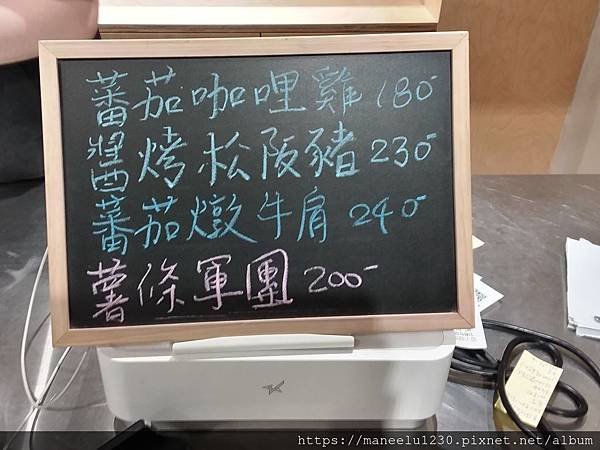 蕃茄咖哩雞 180-
醬烤松阪豬 230-
蕃茄燉牛肩 240-
薯條軍團 200-
https://maneelu1230.pixnet.net/album